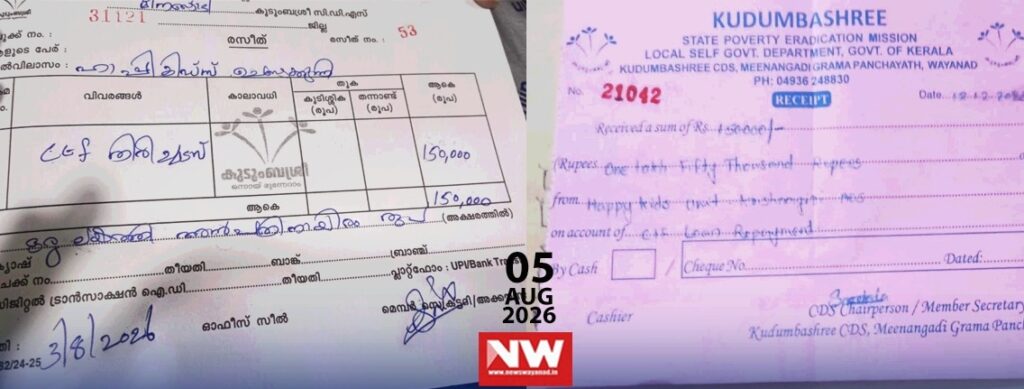 31121
കുടുംബശ്രീ സി.ഡി.എസ്
ജില്ല
രസീത്
രസീത് നം. : 53
ക്ക് നം. :
ളുടെ പേര് :
ൽവിലാസം :
നം.
വിവരങ്ങൾ
കാലാവധി
തുക
കുടിശ്ശിക (രൂപ)
തന്നാണ്ട് (രൂപ)
ആകെ (രൂപ)
CEF
150,000
കുടുംബശ്രീ
ഒന്നായ് മുന്നേറാം
ആകെ
150,000
രൂപ (അക്ഷരത്തിൽ)
ക്യാഷ്
തീയതി
ബാങ്ക്
ബ്രാഞ്ച്
ചെക്ക് നം.
തീയതി
പ്ലാറ്റ്ഫോം : UPI/Bank
ഡിജിറ്റൽ ട്രാൻസാക്ഷൻ ഐ.ഡി
ഓഫീസ് സീൽ
മെമ്പർ സെക്രട്ടറി/
3/8/2026
82/24-25
KUDUMBASHREE
STATE POVERTY ERADICATION MISSION
LOCAL SELF GOVT. DEPARTMENT, GOVT. OF KERALA
KUDUMBASHREE CDS, MEENANGADI GRAMA PANCHAYATH, WAYANAD
PH: 04936 248830
No. 21042
RECEIPT
Date 12.12
Received a sum of Rs. 150000/-
(Rupees One lakh Fifty Thousand Rupees
from Happy Kids Unit
on account of Loan Repayment
By Cash / Cheque No. Dated:
Cashier
CDS Chairperson / Member Secretary
Kudumbashree CDS, Meenangadi Grama Panch
05
AUG
2026
NW
www.newswayanad.in